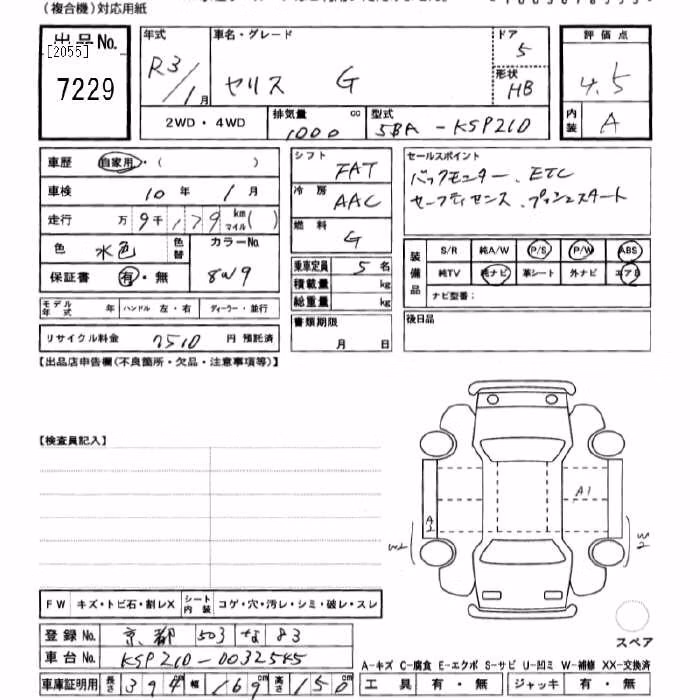 (複合機)対応用紙
出品No.
[2055]
7229
年式
R3/1月
車名・グレード
ヤリス G
ドア
5
形状
HB
評価点
4.5
2WD・4WD
排気量
1000 cc
型式
5BA-KSP210
内装
A
車歴 自家用・( )
車検 10年 1月
走行 万9千179 km マイル( )
色 水色 色替 カラーNo.
8W9
保証書 有・無
シフト FAT
冷房 AAC
燃料 G
乗車定員 5名
積載量 kg
総重量 kg
セールスポイント
バックモニター、ETC
セーフティセンス、プッシュスタート
装備品
S/R 純A/W P/S P/W ABS
純TV 純ナビ 革シート 外ナビ エアB
ナビ型番:
モデル年式 年 ハンドル 左・右 ディーラー・並行
リサイクル料金 7510 円 預託済
書類期限
月 日
後日品
【出品店申告欄(不良箇所・欠品・注意事項等)】
【検査員記入】
A1
A2
W2
W2
FW キズ・トビ石・割レX シート内装 コゲ・穴・汚レ・シミ・破レ・スレ
登録No. 京都 503 な 83
車台No. KSP210-0032545
車庫証明用 長さ 394cm 幅 169cm 高さ 150cm
スペア
A-キズ C-腐食 E-エクボ S-サビ U-凹ミ W-補修 XX-交換済
工具 有・無 ジャッキ 有・無